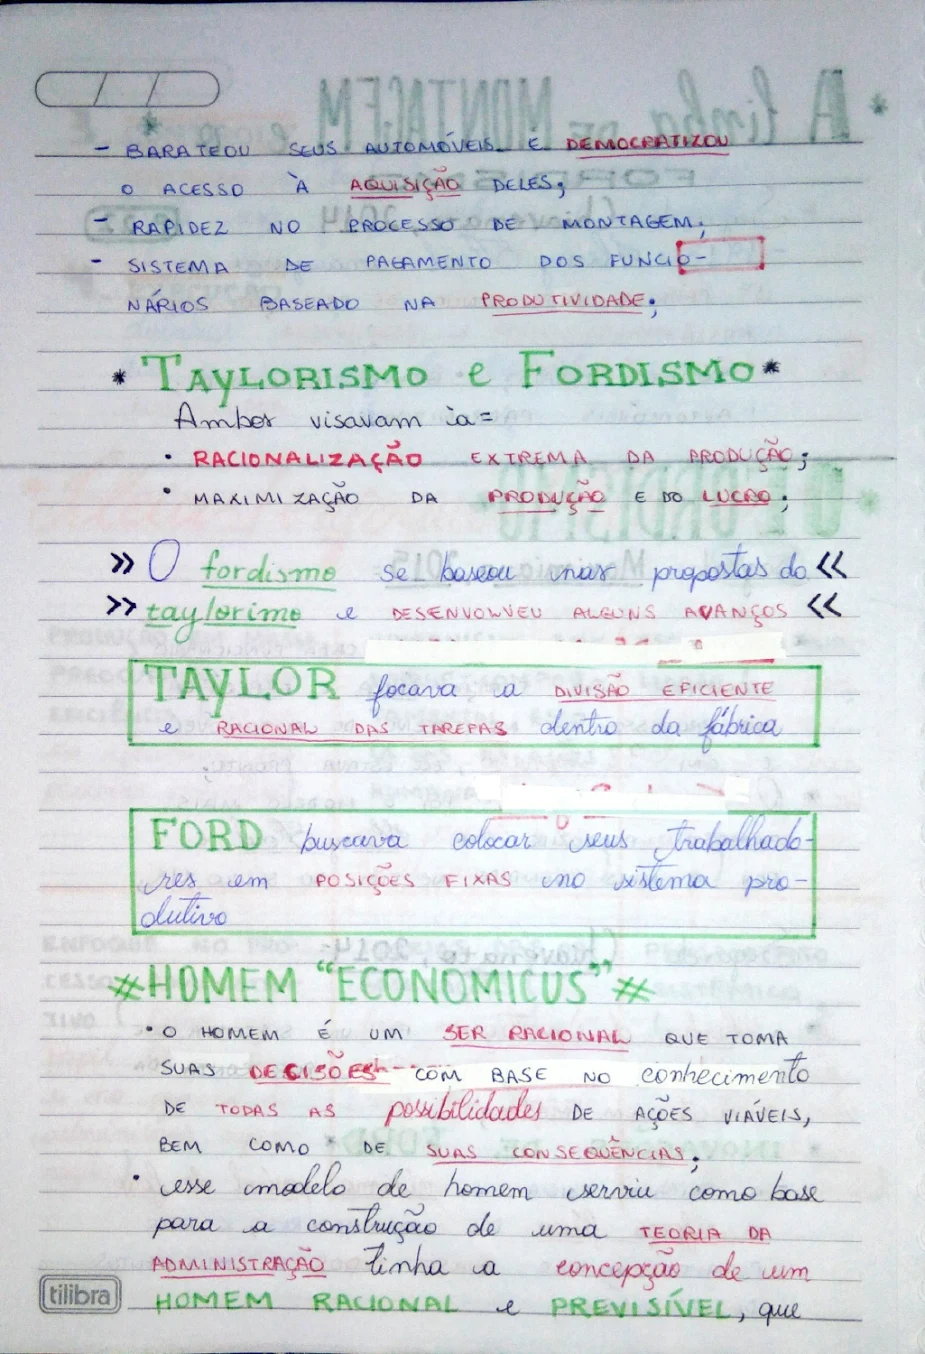 - BARATEOU SEUS AUTOMÓVEIS E DEMOCRATIZOU
O ACESSO À AQUISIÇÃO DELES;
- RAPIDEZ NO PROCESSO DE MONTAGEM;
- SISTEMA DE PAGAMENTO DOS FUNCIO-
NÁRIOS BASEADO NA PRODUTIVIDADE;
* TAYLORISMO e FORDISMO *
Ambos visavam a=
• RACIONALIZAÇÃO EXTREMA DA PRODUÇÃO;
• MAXIMIZAÇÃO DA PRODUÇÃO E DO LUCRO;
>> O fordismo se baseou nas propostas do <<
>> taylorimo e DESENVOLVEU ALGUNS AVANÇOS <<
TAYLOR focava a DIVISÃO EFICIENTE
e RACIONAL DAS TAREFAS dentro da fábrica
FORD buscava colocar seus trabalhado-
res em POSIÇÕES FIXAS no sistema pro-
dutivo
#HOMEM "ECONOMICUS"#
• O HOMEM É UM SER RACIONAL QUE TOMA
SUAS DECISÕES COM BASE NO conhecimento
DE TODAS AS possibilidades DE AÇÕES VIÁVEIS,
BEM COMO DE SUAS CONSEQUÊNCIAS;
• esse modelo de homem serviu como base
para a construção de uma TEORIA DA
ADMINISTRAÇÃO tinha a concepção de um
HOMEM RACIONAL e PREVISÍVEL, que
tilibra